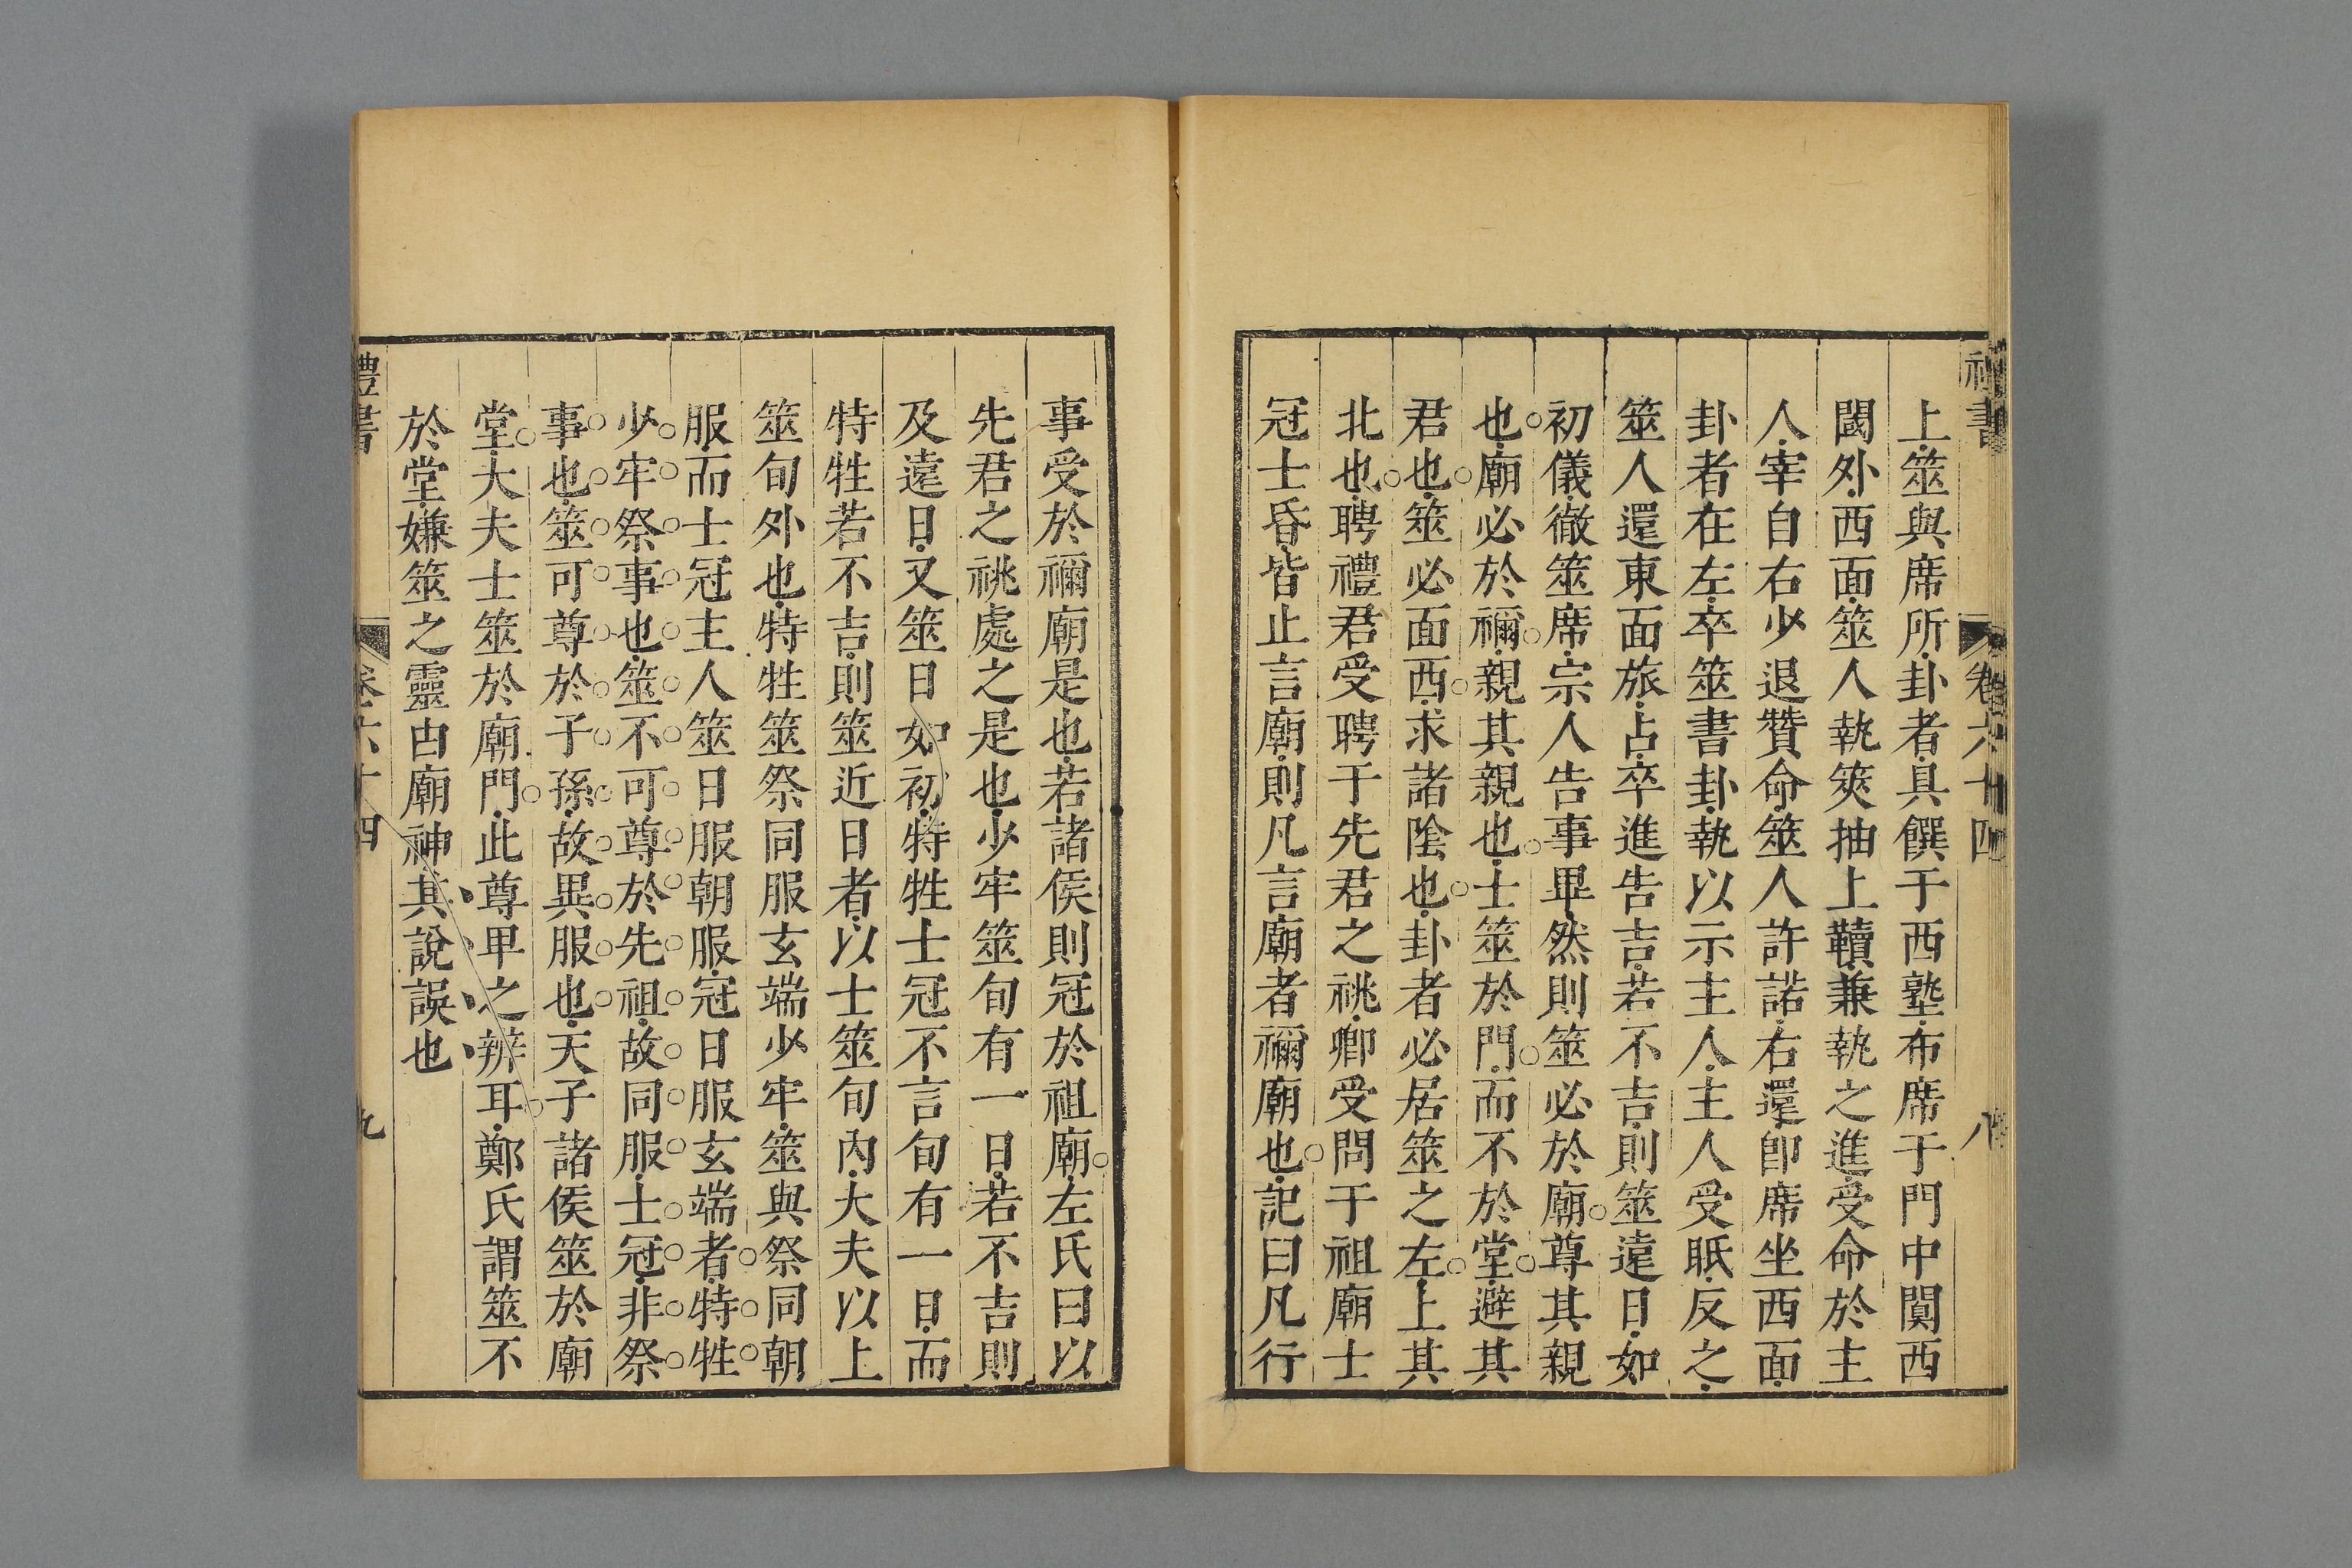 禮書
卷六十四
八
上筮與席所卦者具饌于西塾布席于門中闑西
閾外西面筮人執筴抽上韇兼執之進受命於主
人宰自右少退贊命筮人許諾右還卽席坐西面
卦者在左卒筮書卦執以示主人主人受眂反之
筮人還東面旅占卒進告吉若不吉則筮遠日如
初儀徹筮席宗人告事畢然則筮必於廟尊其親
也廟必於禰親其親也士筮於門而不於堂避其
君也筮必面西求諸陰也卦者必居筮之左上其
北也聘禮君受聘于先君之祧卿受問于祖廟士
冠士昏皆止言廟則凡言廟者禰廟也記曰凡行
事受於禰廟是也若諸侯則冠於祖廟左氏曰以
先君之祧處之是也少牢筮旬有一日若不吉則
及遠日又筮日如初特牲士冠不言旬有一日而
特牲若不吉則筮近日者以士筮旬內大夫以上
筮旬外也特牲筮祭同服玄端少牢筮與祭同朝
服而士冠主人筮日服朝服冠日服玄端者特牲
少牢祭事也筮不可尊於先祖故同服士冠非祭
事也筮可尊於子孫故異服也天子諸侯筮於廟
堂大夫士筮於廟門此尊卑之辨耳鄭氏謂筮不
於堂嫌筮之靈由廟神其說誤也
禮書
卷六十四
九